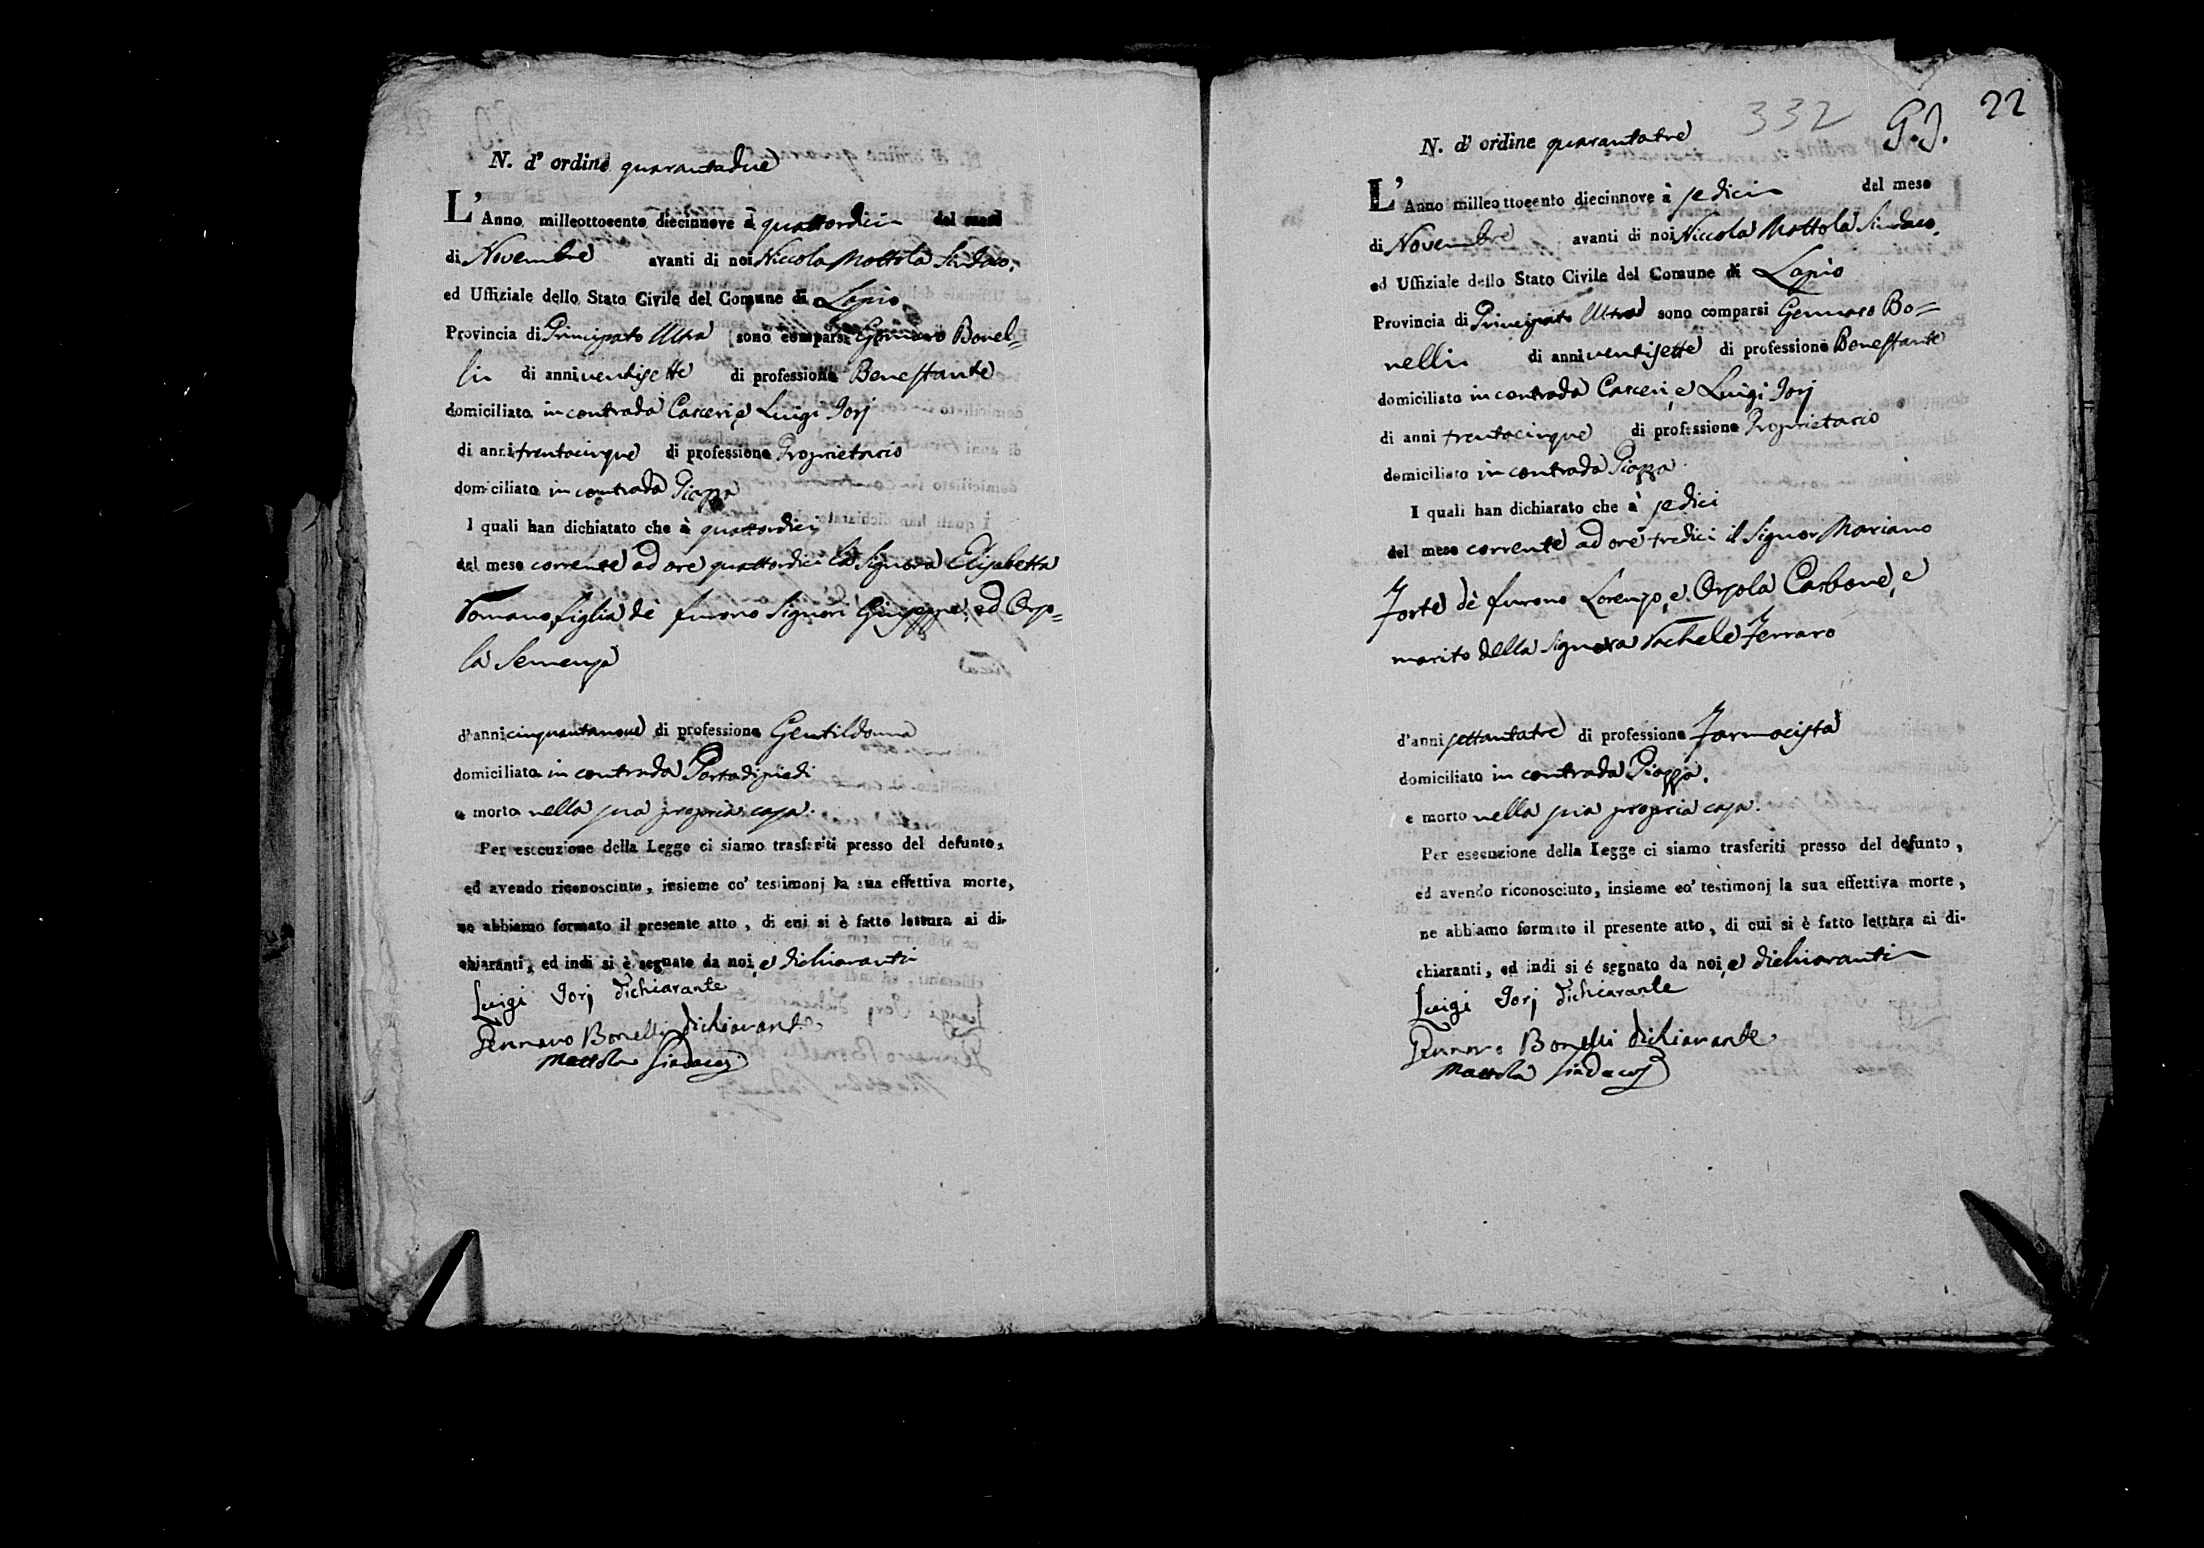 N. d' ordine quarantadue
L' Anno milleottocento diecinnove à quattordici del mese
di Novembre avanti di noi Niccola Mottola Sindaco,
ed Uffiziale dello Stato Civile del Comune di Lapio
Provincia di Principato Ultra sono comparsi Gennaro Bonel=
li di anni ventisette di professione Benestante
domiciliato in contrada Carceri, e Luigi Iorj
di anni trentacinque di professione Proprietario
domiciliato in contrada Piazza
I quali han dichiatato che à quattordici
del mese corrente ad ore quattordici la Signora Elisabetta
Romano figlia de' furono Signori Giuseppe, ed Orso=
la Semenza
d'anni cinquantanove di professione Gentildonna
domiciliato in contrada Portadipiedi
e morta nella sua propria casa.
Per esecuzione della Legge ci siamo trasferiti presso del defunto,
ed avendo riconosciuto, insieme co' testimonj la sua effettiva morte,
ne abbiamo formato il presente atto, di cui si è fatto lettura ai di-
chiaranti, ed indi si è segnato da noi, e dichiaranti
Luigi Iorj dichiarante
Gennaro Bonelli dichiarante
Mottola Sindaco
332 G.I. 22
N. d' ordine quarantatre
L' Anno milleottocento diecinnove à sedici del mese
di Novembre avanti di noi Niccola Mottola Sindaco,
ed Uffiziale dello Stato Civile del Comune di Lapio
Provincia di Principato Ultra sono comparsi Gennaro Bo=
nelli di anni ventisette di professione Benestante
domiciliato in contrada Carceri, e Luigi Iorj
di anni trentacinque di professione Proprietario
domiciliato in contrada Piazza
I quali han dichiarato che à sedici
del mese corrente ad ore tredici il Signor Mariano
Forte de' furono Lorenzo, e Orsola Carbone, e
marito della Signora Rachele Ferraro
d'anni settantatre di professione Farmacista
domiciliato in contrada Piazza.
e morto nella sua propria casa.
Per esecuzione della Legge ci siamo trasferiti presso del defunto,
ed avendo riconosciuto, insieme co' testimonj la sua effettiva morte,
ne abbiamo formato il presente atto, di cui si è fatto lettura ai di-
chiaranti, ed indi si é segnato da noi, e dichiaranti
Luigi Iorj dichiarante
Gennaro Bonelli dichiarante
Mottola Sindaco